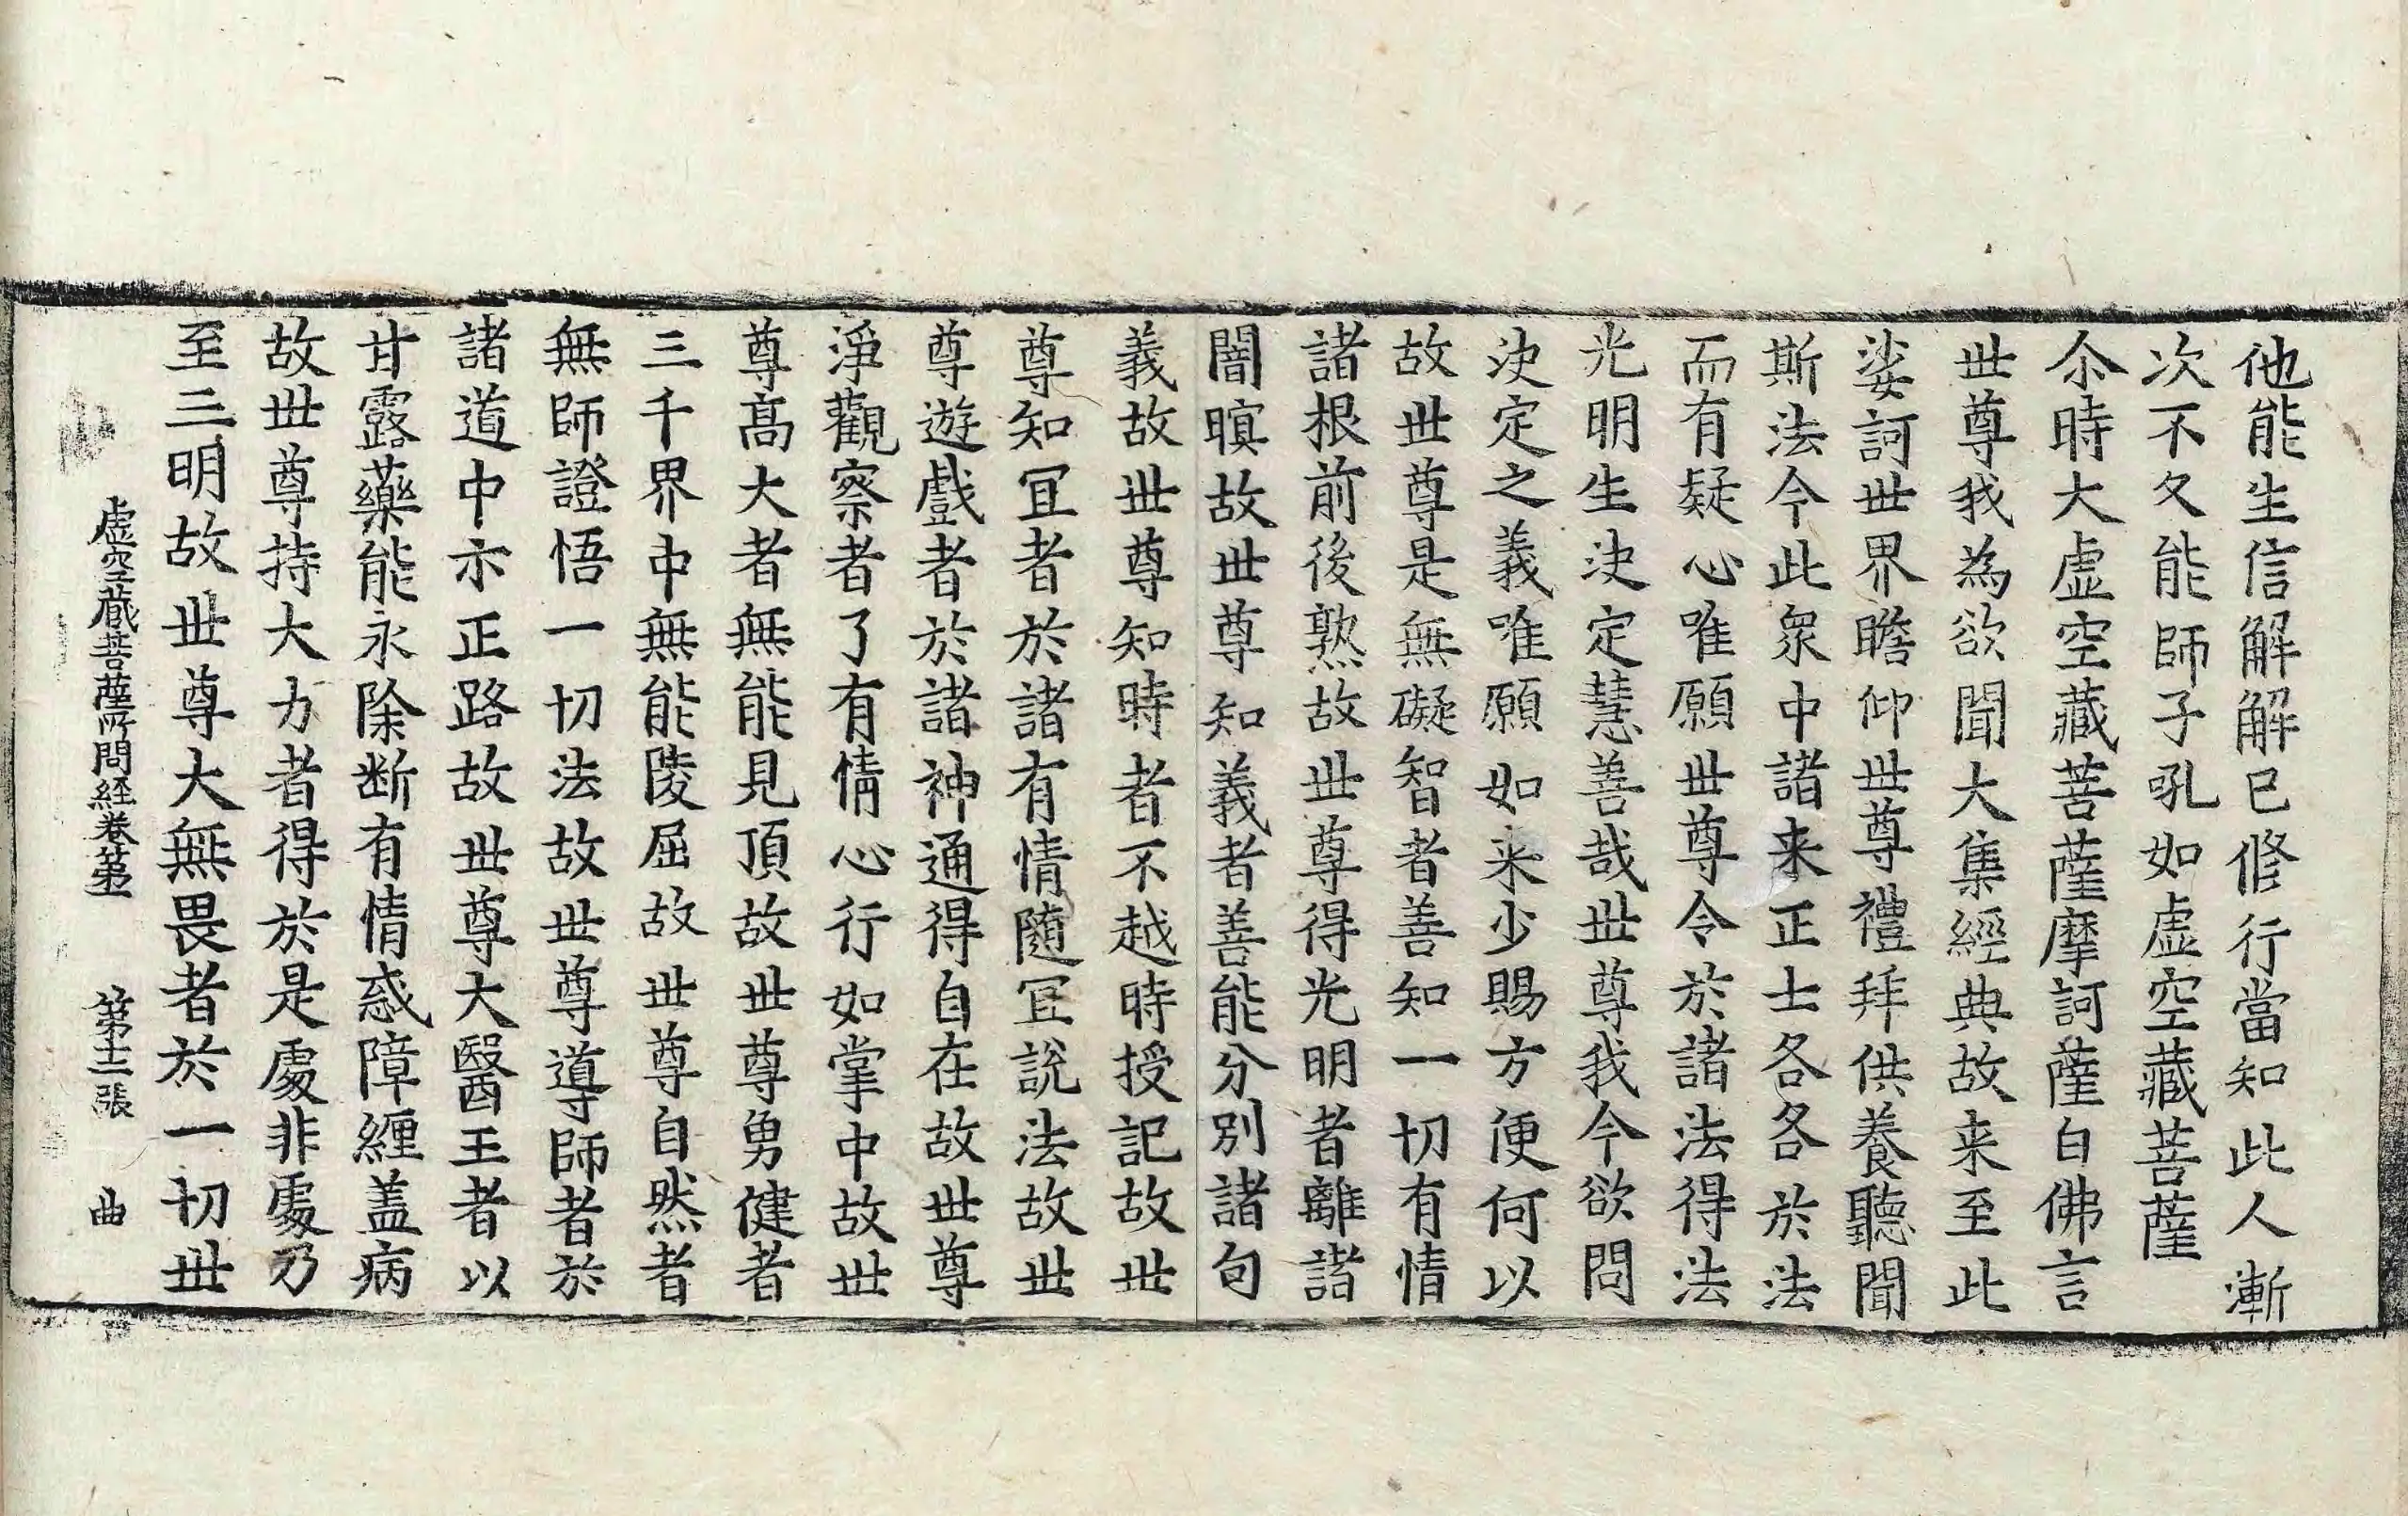 他能生信解解已修行當知此人漸
次不久能師子吼如虛空藏菩薩
尒時大虛空藏菩薩摩訶薩白佛言
世尊我為欲聞大集經典故来至此
娑訶世界瞻仰世尊禮拜供養聽聞
斯法今此衆中諸来正士各各於法
而有疑心唯願世尊令於諸法得法
光明生決定慧善哉世尊我今欲問
決定之義唯願如来少賜方便何以
故世尊是無礙智者善知一切有情
諸根前後熟故世尊得光明者離諸
闇暝故世尊知義者善能分別諸句
義故世尊知時者不越時授記故世
尊知冝者於諸有情隨冝說法故世
尊遊戲者於諸神通得自在故世尊
淨觀察者了有情心行如掌中故世
尊髙大者無能見頂故世尊勇健者
三千界中無能陵屈故世尊自然者
無師證悟一切法故世尊導師者於
諸道中示正路故世尊大醫王者以
甘露藥能永除断有情惑障纏盖病
故世尊持大力者得於是處非處乃
至三明故世尊大無畏者於一切世
虛空藏菩薩所問経卷第一 第十二張 曲